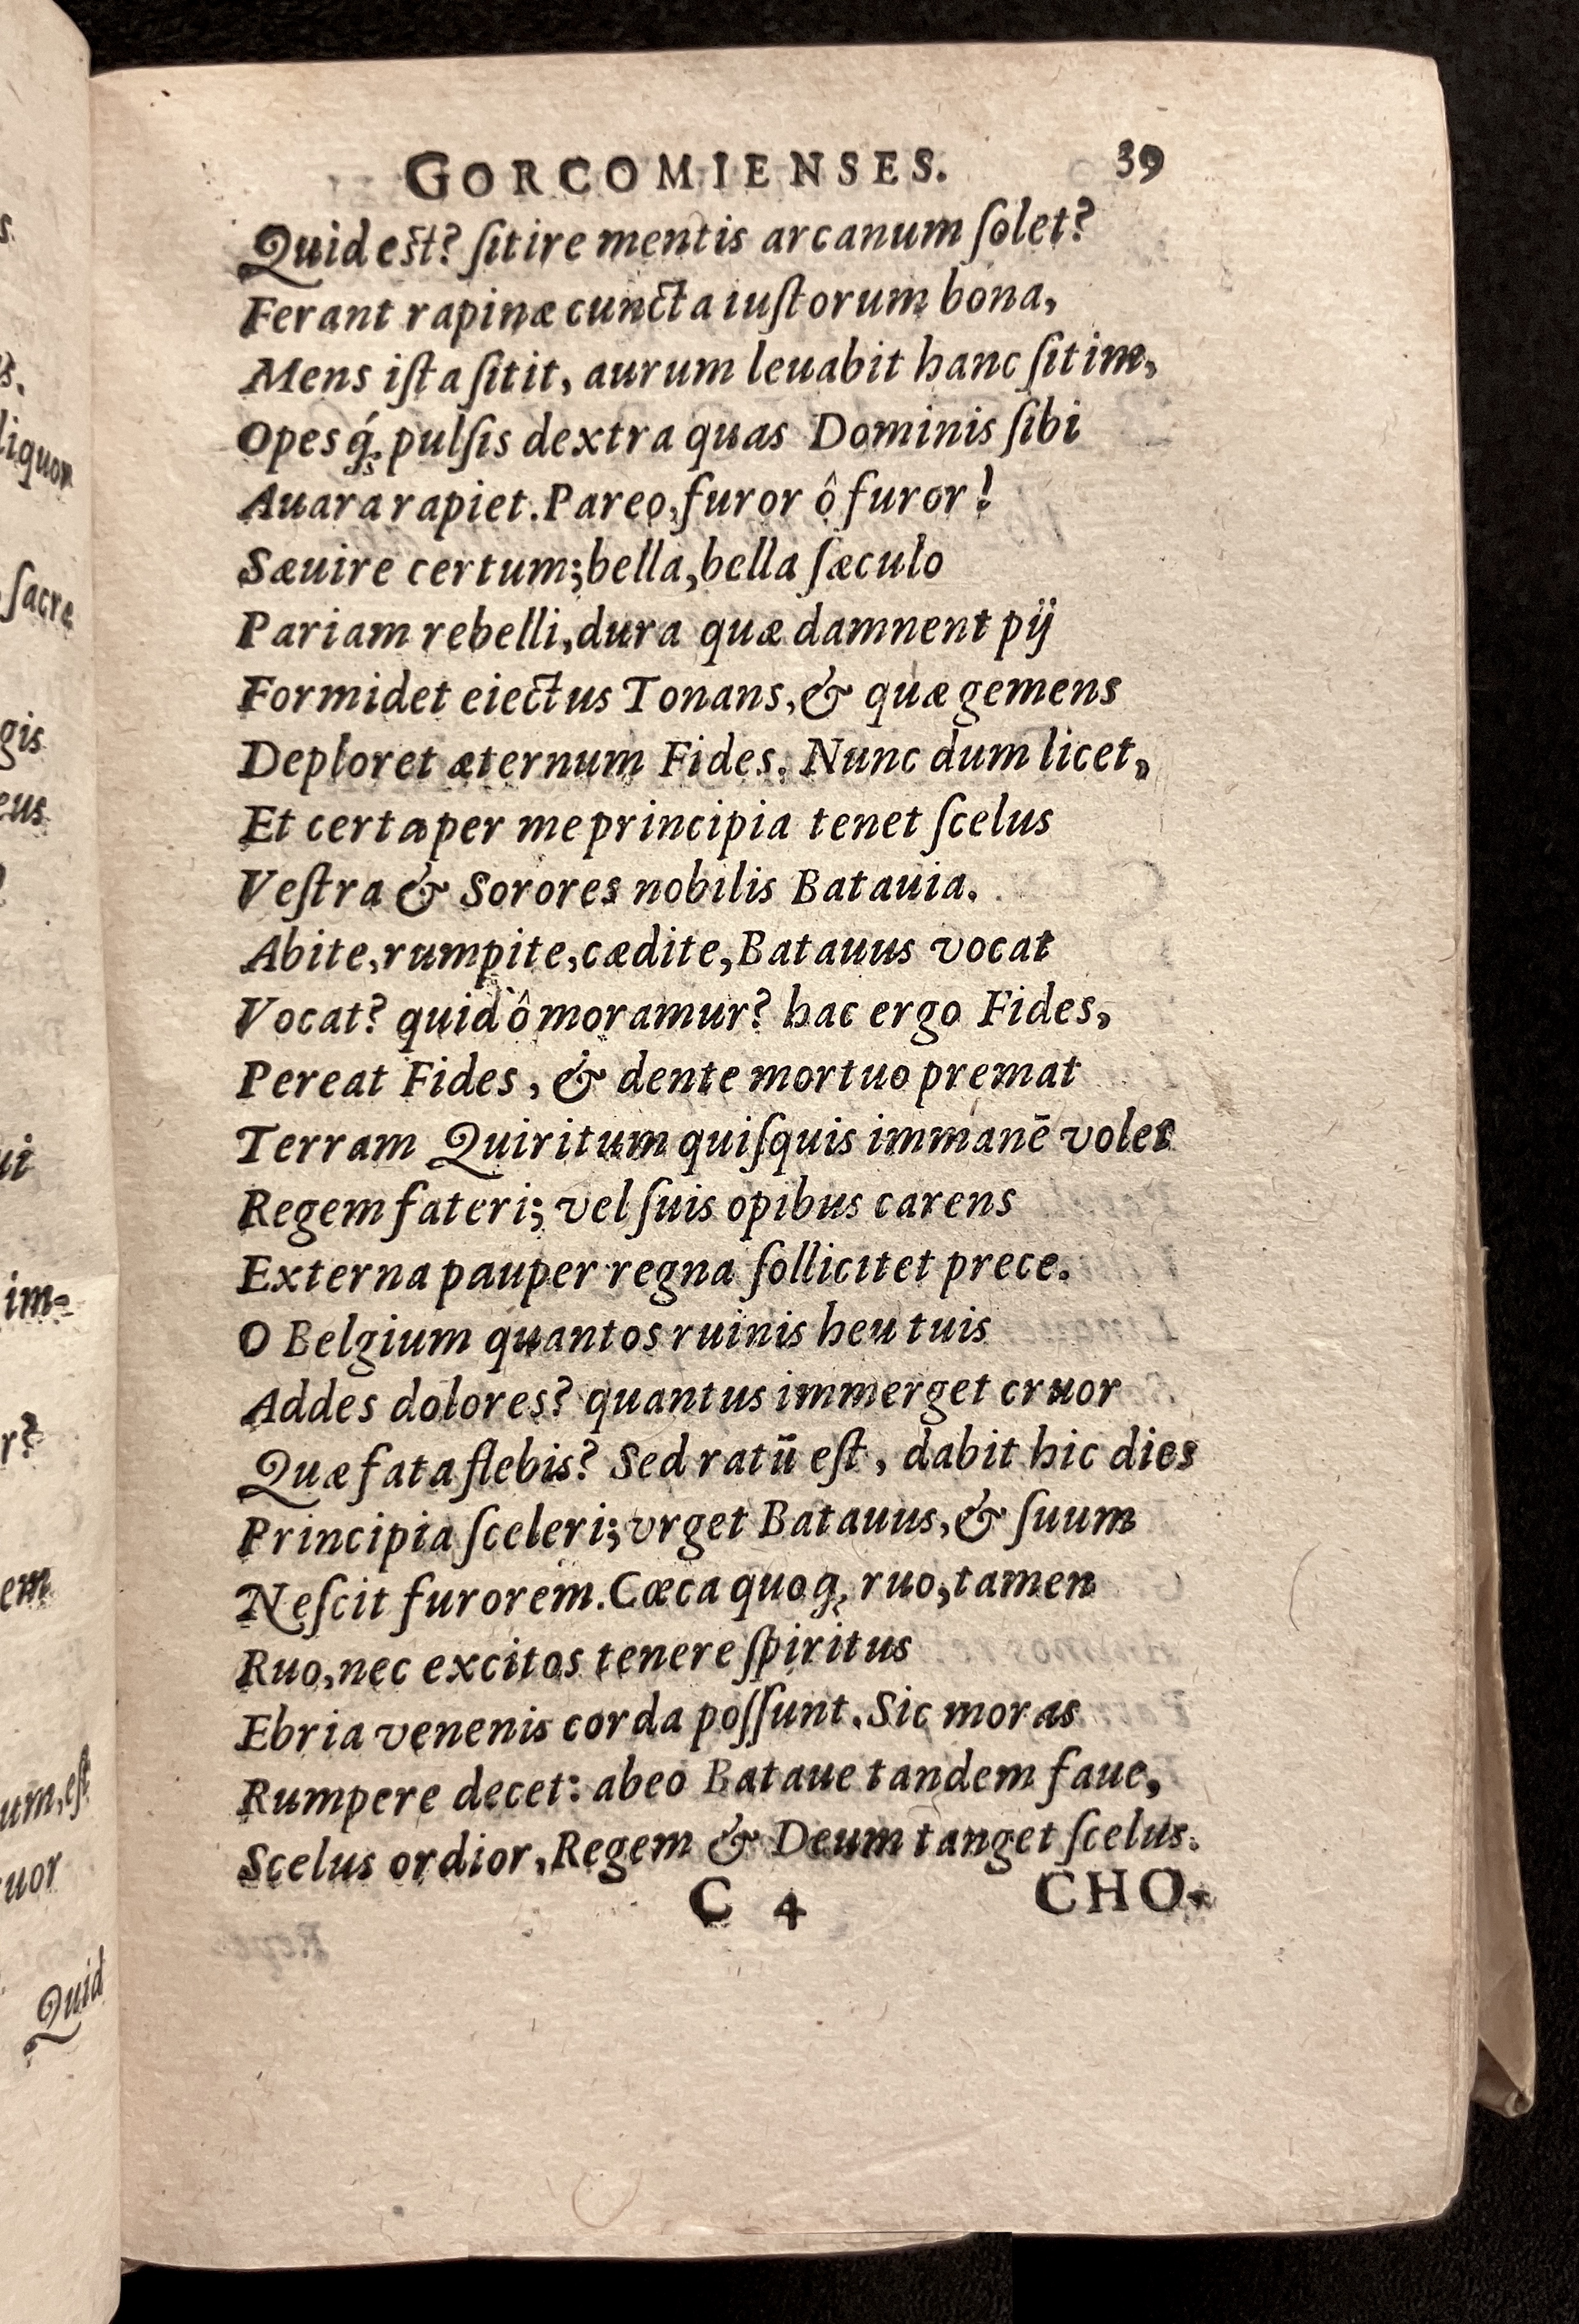 GORCOMIENSES. 39
Quid est? ſitire mentis arcanum ſolet?
Ferant rapinæ cuncta iuſtorum bona,
Mens iſta ſitit, aurum leuabit hanc ſitim,
Opesq́; pulſis dextra quas Dominis ſibi
Auara rapiet. Pareo, furor ô furor!
Sæuire certum; bella, bella ſæculo
Pariam rebelli, dura quæ damnent pij
Formidet eiectus Tonans, & quæ gemens
Deploret æternum Fides. Nunc dum licet,
Et certa per me principia tenet ſcelus
Veſtra & Sorores nobilis Batauia.
Abite, rumpite, cædite, Batauus vocat
Vocat? quid ô moramur? hac ergo Fides,
Pereat Fides, & dente mortuo premat
Terram Quiritum quiſquis immanē volet
Regem fateri; vel ſuis opibus carens
Externa pauper regna ſollicitet prece.
O Belgium quantos ruinis heu tuis
Addes dolores? quantus immerget cruor
Quæ fata flebis? Sed ratū eſt, dabit hic dies
Principia ſceleri; vrget Batauus, & ſuum
Neſcit furorem. Cœca quoq; ruo, tamen
Ruo, nec excitos tenere ſpiritus
Ebria venenis corda poſſunt. Sic moras
Rumpere decet: abeo Bataue tandem faue,
Scelus ordior, Regem & Deum tanget ſcelus.
C 4 CHO-
s.
s.
liquor
ſacre
gis
eus
ui
im-
r?
em
um, eſt
uor
Quid